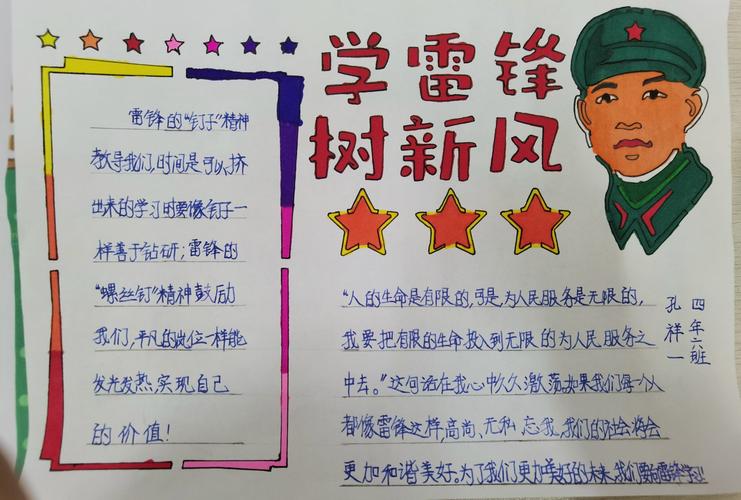 学雷锋
树新风
雷锋的“钉子”精神
教导我们,时间是可以挤
出来的学习时要像钉子一
样善于钻研;雷锋的
“螺丝钉”精神鼓励
我们,平凡的岗位一样能
发光发热,实现自己
的价值!
“人的生命是有限的,可是,为人民服务是无限的,
我要把有限的生命投入到无限的为人民服务之
中去。”这句话在我心中久久激荡,如果我们每个人
都像雷锋这样,高尚、无私、忘我,我们的社会将会
更加和谐美好。为了我们更加美好的未来,我们要向雷锋学习!
四年六班
孔祥一